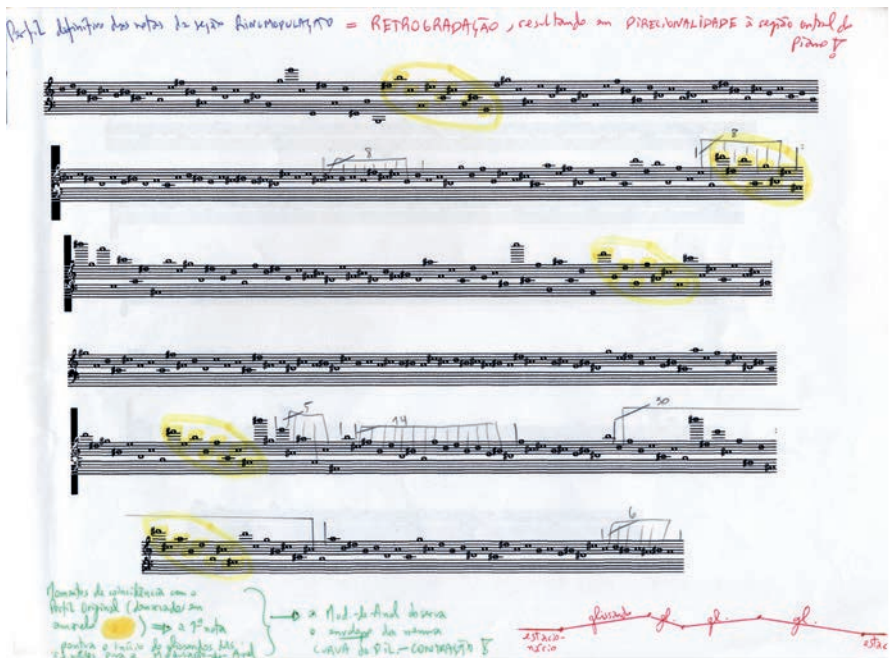 Perfil definitivo das notas da seção RINGMODULAÇÃO = RETROGRADAÇÃO, resultando em DIRECIONALIDADE à região central do
piano!
8
8
5
14
30
6
Momentos de coincidência com o
Perfil Original (demarcados em
amarelo ) ⇒ a 1ª nota
pontua o início do glissando das
a Mod. do Anel observa
o mesmo
CURVA do DIL-CONTRAÇÃO!
estacio-
nário
glissando
gl.
gl.
gl.
estac